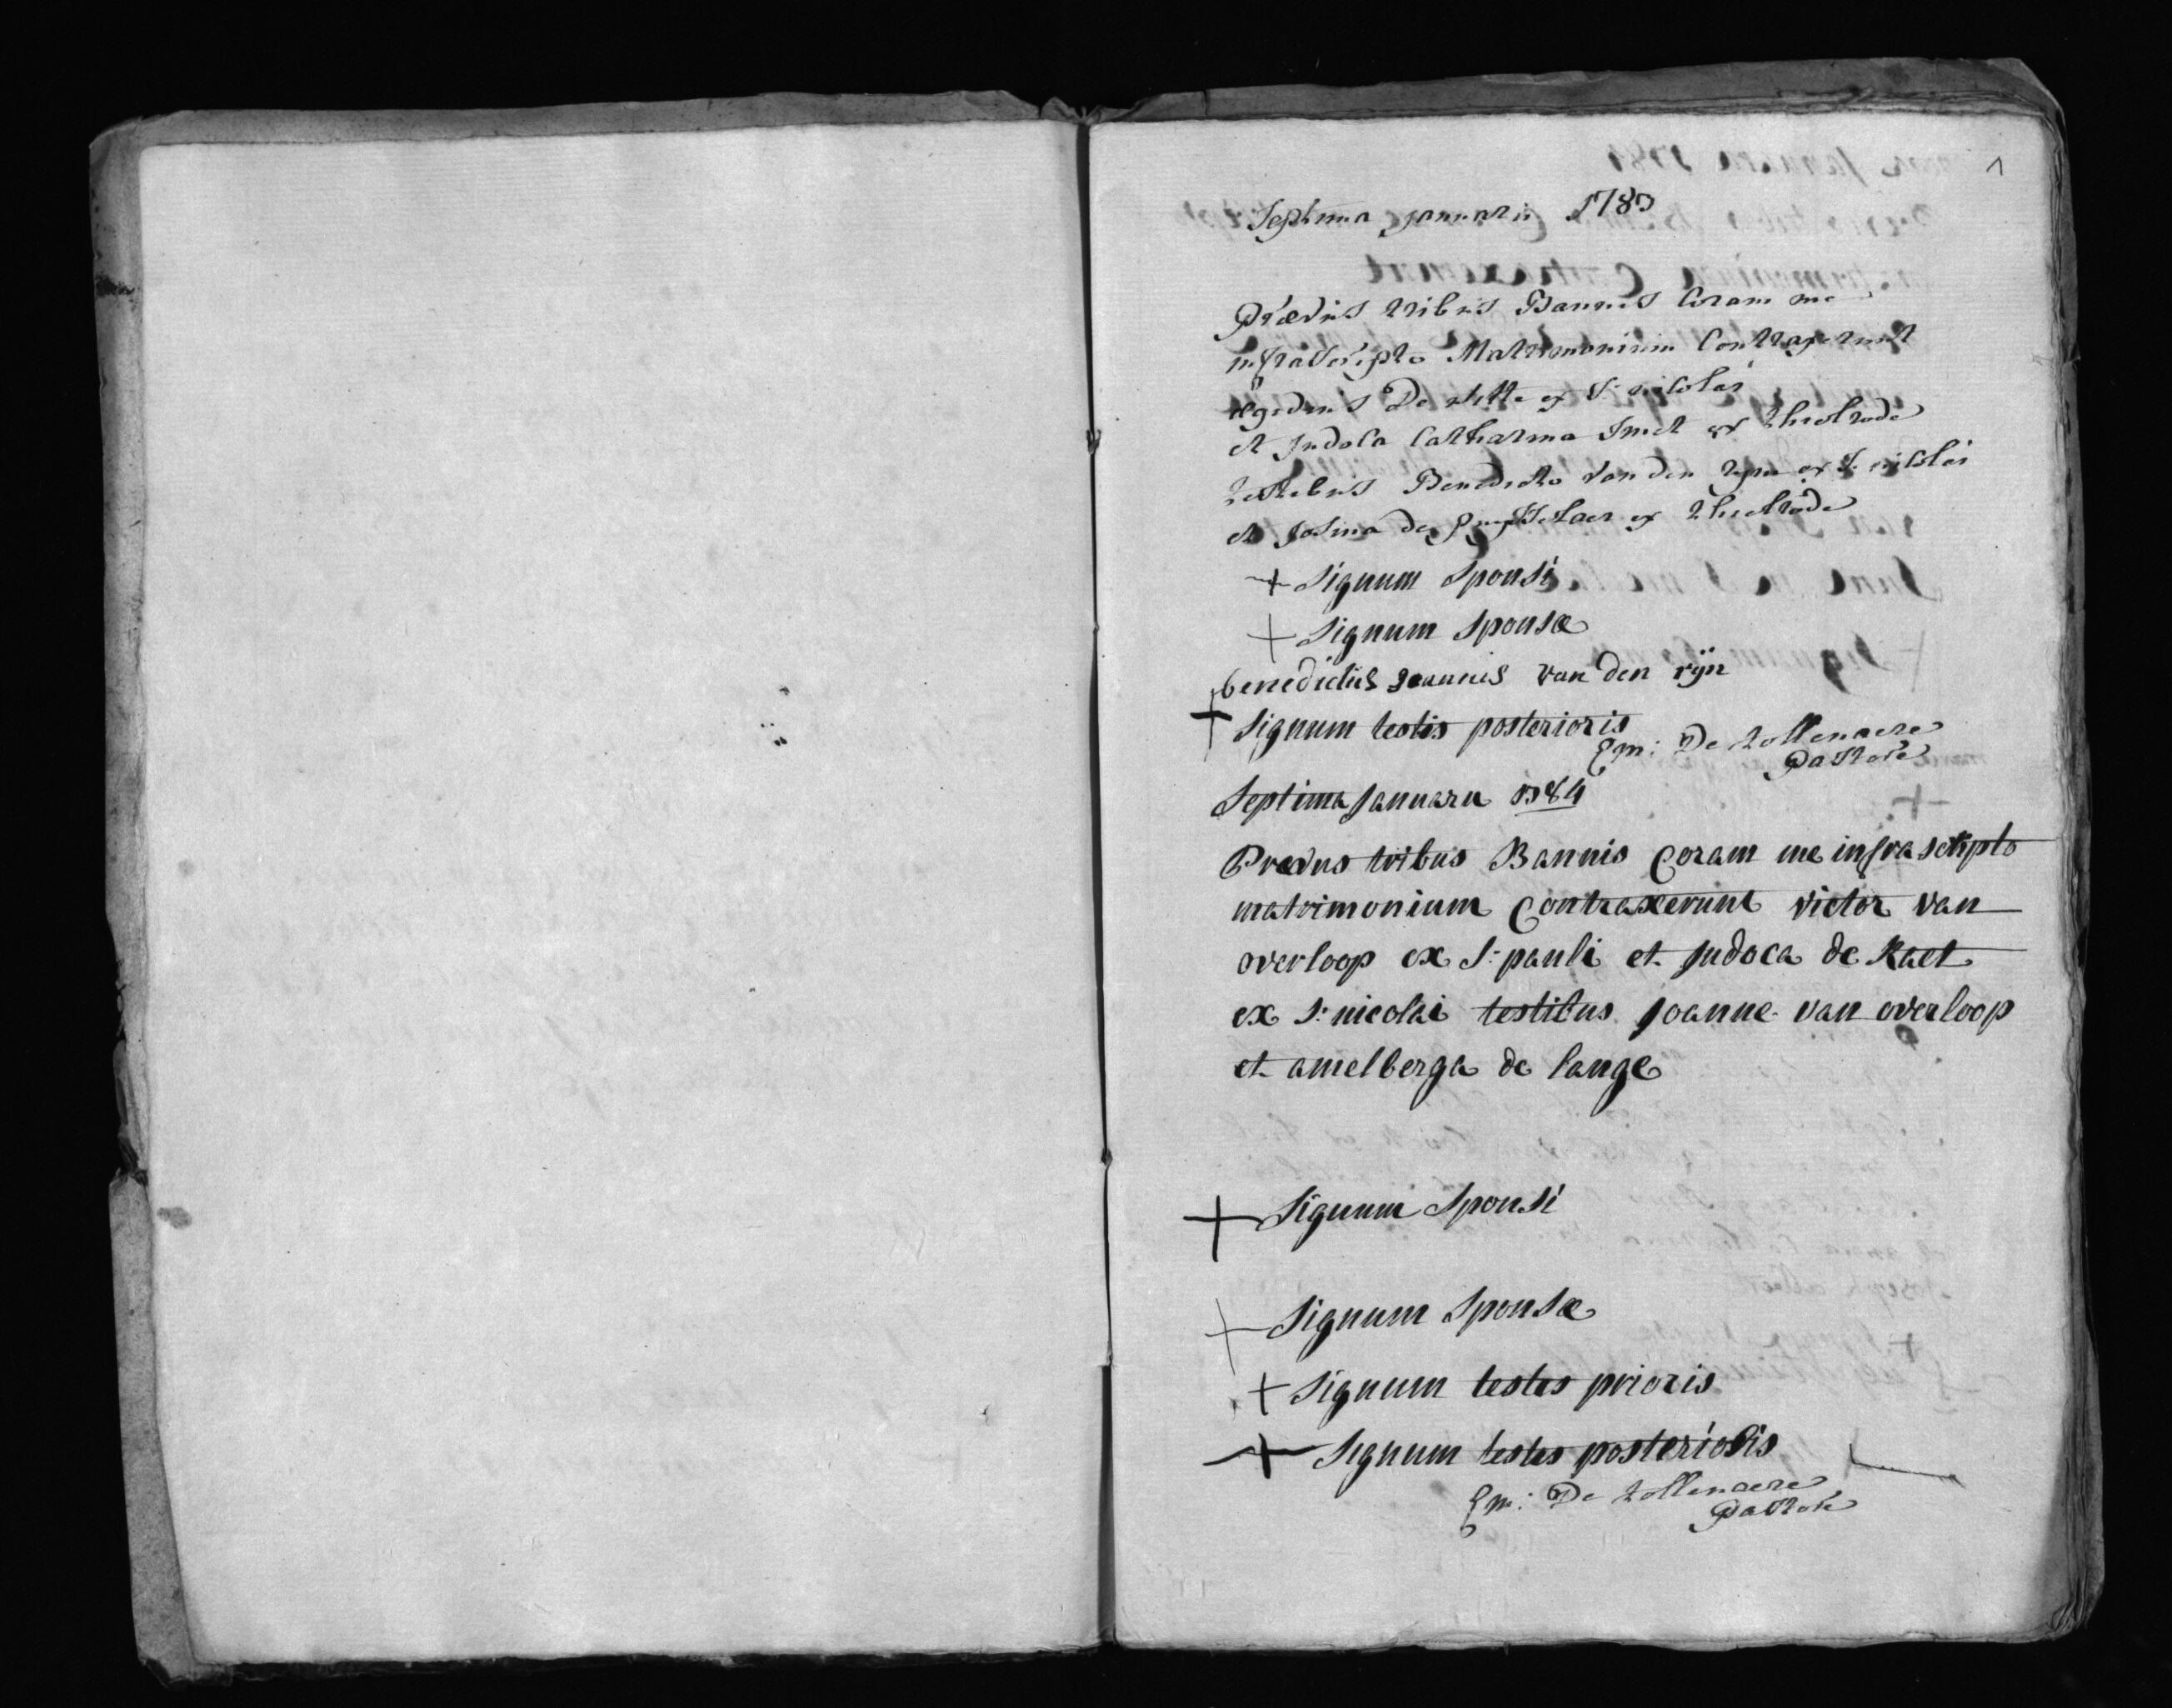 1
Septima januarii 1783
Præviis tribus Bannis Coram me
infrascripto Matrimonium Contraxerunt
ægidius De witte ex S: nicolai
et Judoca Catharina Smet ex thielrode
testibus Benedicto van den ryn ex S. nicolai
et Josina de ex thielrode
+ Signum Sponsi
+ Signum Sponsæ
benedictus Joannes van den rijn
+ Signum testis posterioris
Em: De tollenaere
Pastor
Septima Januarii 1784
Præviis tribus Bannis Coram me infrascripto
matrimonium Contraxerunt victor van
overloop ex S: pauli et Judoca de Raet
ex S: nicolai testibus Joanne van overloop
et amelberga de lange
+ Signum Sponsi
+ Signum Sponsæ
+ Signum testes prioris
+ Signum testes posterioris
Em: De tollenaere
Pastor